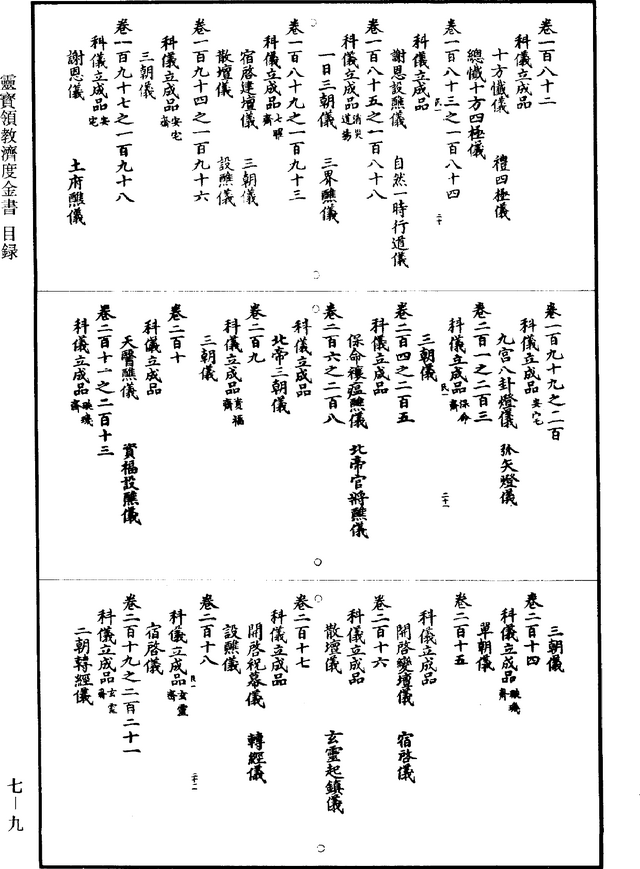 靈寶領教濟度金書 目録
七—九
卷一百八十二
科儀立成品
十方懺儀 禮四極儀
總懺十方四極儀
卷一百八十三之一百八十四
科儀立成品
謝恩設醮儀 自然一時行道儀
卷一百八十五之一百八十八
科儀立成品 消災道塲
一日三朝儀 三界醮儀
卷一百八十九之一百九十三
科儀立成品 齋
宿啓建壇儀 三朝儀
散壇儀 設醮儀
卷一百九十四之一百九十六
科儀立成品 安宅齋
三朝儀
卷一百九十七之一百九十八
科儀立成品 安宅
謝恩儀 土府醮儀
卷一百九十九之二百
科儀立成品 安宅
九宫八卦燈儀 狐矢燈儀
卷二百一之二百三
科儀立成品 保命齋
三朝儀
卷二百四之二百五
科儀立成品
保命禳瘟醮儀 北帝官將醮儀
卷二百六之二百八
科儀立成品
北帝三朝儀
卷二百九
科儀立成品 資福齋
三朝儀
卷二百十
科儀立成品
天醫醮儀 資福設醮儀
卷二百十一之二百十三
科儀立成品 璇璣齋
三朝儀
卷二百十四
科儀立成品 璇璣齋
單朝儀
卷二百十五
科儀立成品
開啓變壇儀 宿啓儀
卷二百十六
科儀立成品
散壇儀 玄靈起鎮儀
卷二百十七
科儀立成品
開啓祝幕儀 轉經儀
設醮儀
卷二百十八
科儀立成品 玄靈齋
宿啓儀
卷二百十九之二百二十一
科儀立成品 玄靈齋
二朝轉經儀